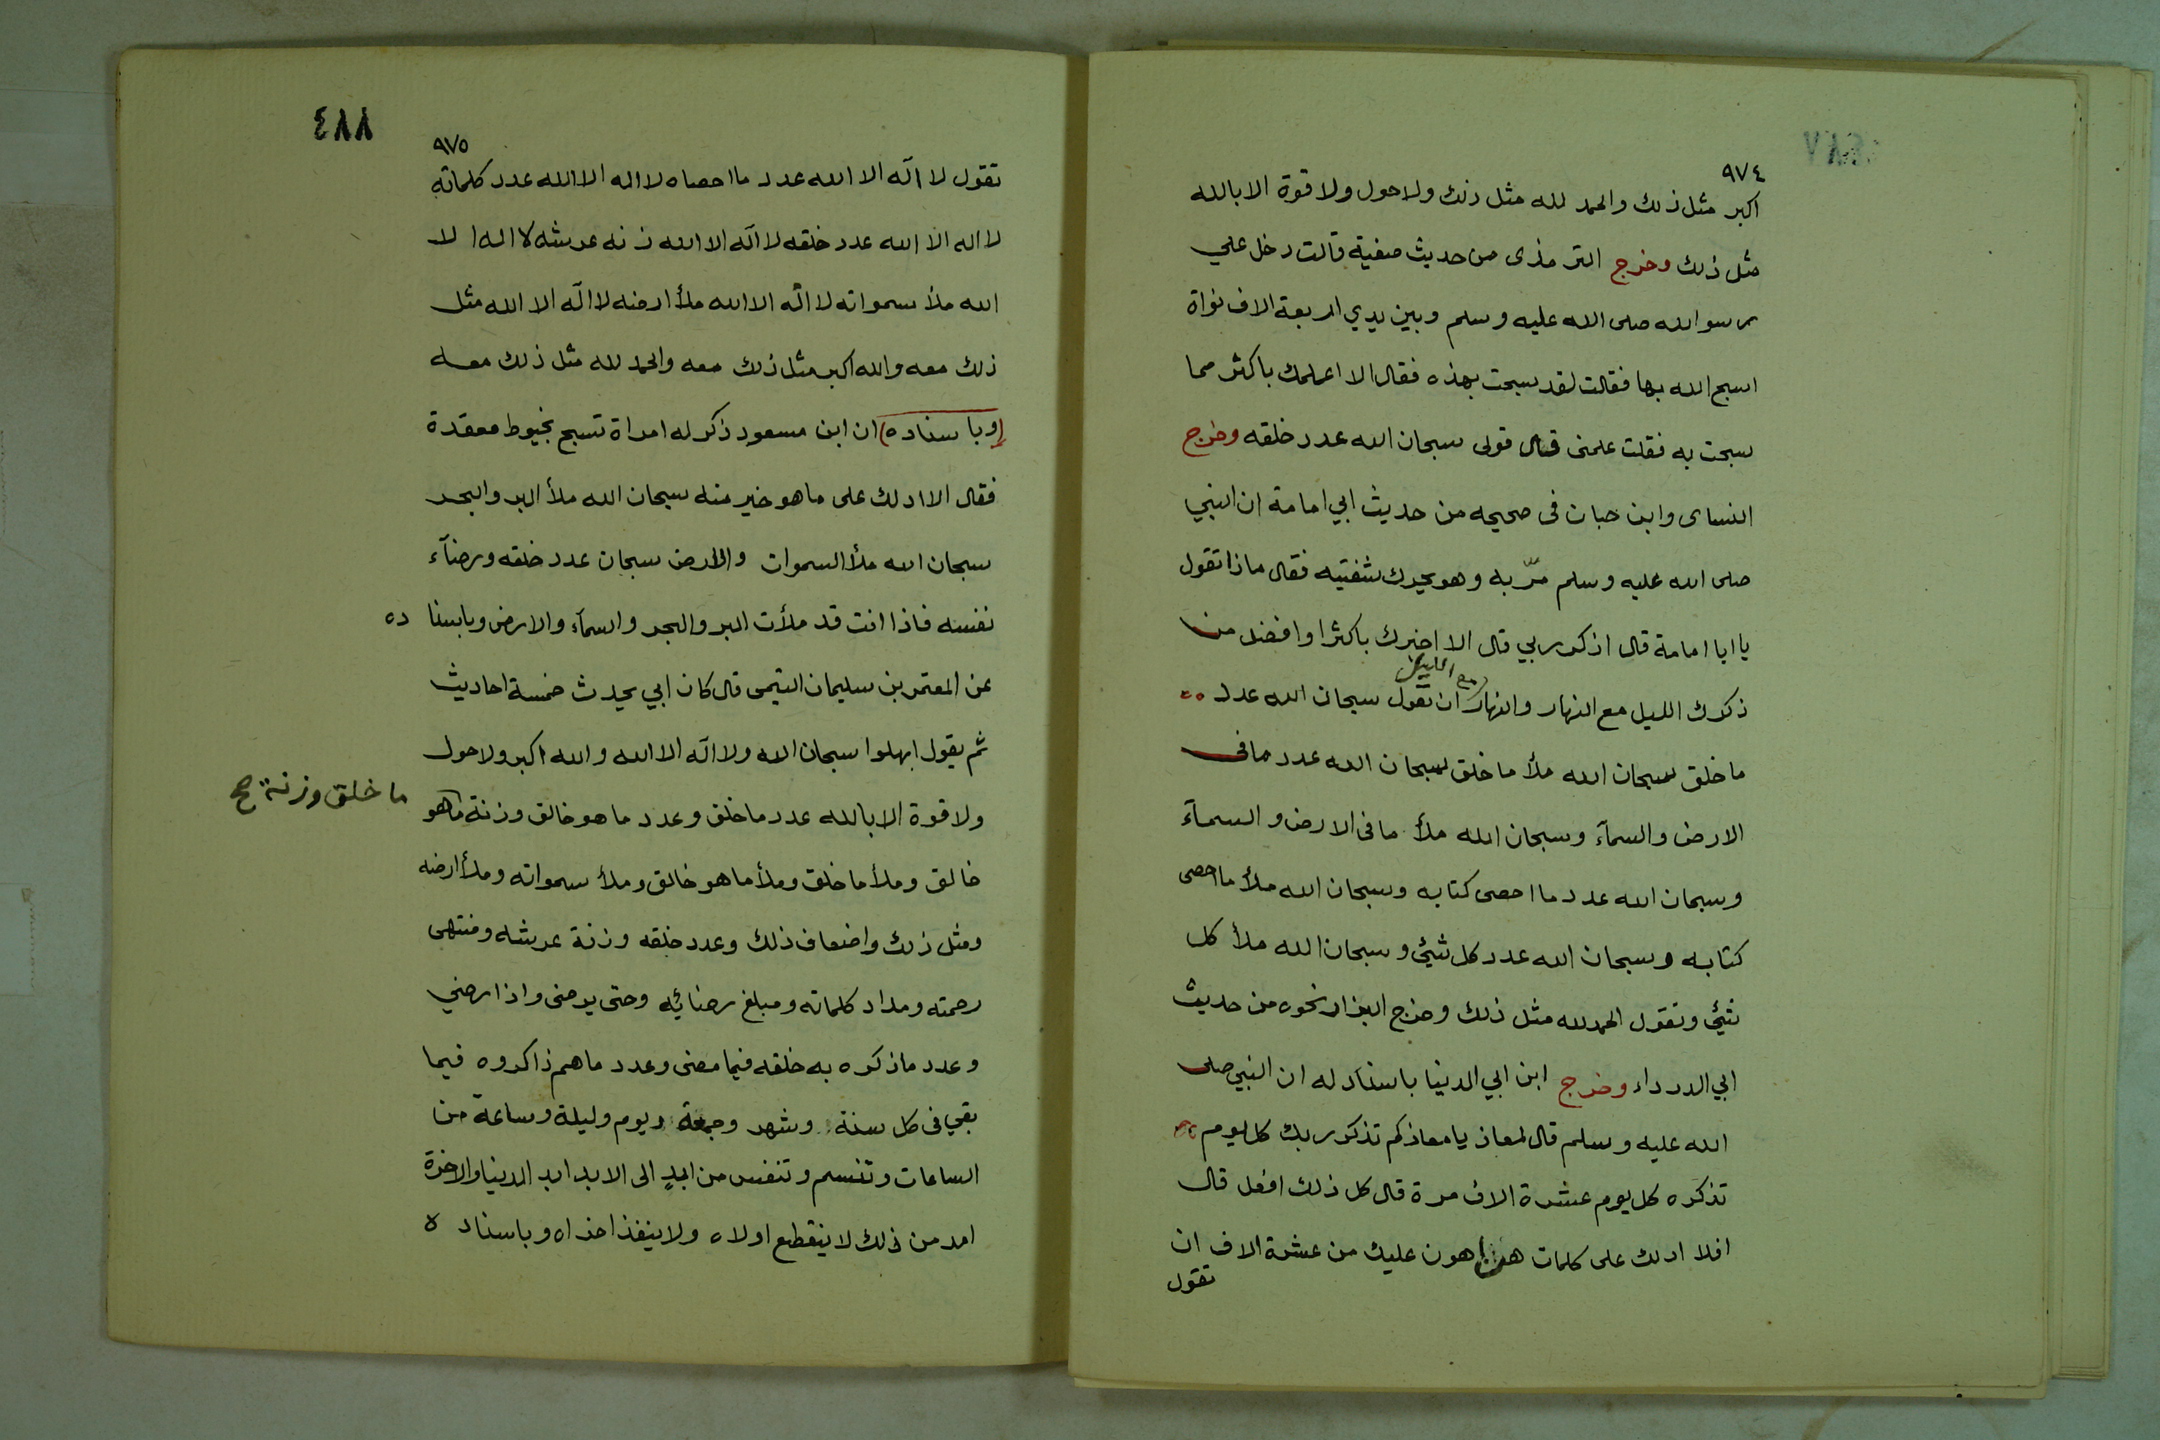 ٩٧٤
اكبر مثل ذلك والحمد لله مثل ذلك ولا حول ولا قوة الا بالله
مثل ذلك وخرج الترمذى من حديث صفية قالت دخل علي
رسو الله صلى الله عليه وسلم وبين يدي اربعة الاف نواة
اسبح الله بها فقالت لقد سبحت بهذه فقال الا اعلمك باكثر مما
سبحت به فقلت علمنى فقال قولى سبحان الله عدد خلقه وخرج
النساى وابن حبان فى صحيحه من حديث ابي امامة ان النبي
صلى الله عليه وسلم مرّ به وهو يحرك شفتيه فقال ماذا تقول
يا ابا امامة قال اذكر ربي قال الا اخبرك باكثر او افضل من
ذكرك الليل مع النهار والنهار مع الليل ان تقول سبحان الله عدد
ما خلق سبحان الله ملأ ما خلق سبحان الله عدد ما فى
الارض والسمآء وسبحان الله ملأ ما فى الارض والسمآء
وسبحان الله عدد ما احصى كتابه وسبحان الله ملأ ما احصى
كتابه وسبحان الله عدد كل شيئ وسبحان الله ملأ كل
شيئ وتقول الحمد لله مثل ذلك وخرج البزار نحوه من حديث
ابي الدرداء وخرج ابن ابي الدنيا باسناد له ان النبي صلى
الله عليه وسلم قال لمعاذ يا معاذ كم تذكر ربك كل يوم
تذكره كل يوم عشرة الاف مرة قال كل ذلك افعل قال
افلا ادلك على كلمات هن اهون عليك من عشرة الاف ان
تقول
٤٨٨
٩٧٥
تقول لا اله الا الله عدد ما احصاه لا اله الا الله عدد كلماته
لا اله الا الله عدد خلقه لا اله الا الله زنه عرشه لا اله ا لا
الله ملأ سمواته لا اله الا الله ملأ ارضه لا اله الا الله مثل
ذلك معه والله اكبر مثل ذلك معه والحمد لله مثل ذلك معه
(وباسناده) ان ابن مسعود ذكر له امراة تسبح بخيوط معقدة
فقال الا ادلك على ما هو خير منه سبحان الله ملأ البر والبحر
سبحان الله ملأ السموات والارض سبحان عدد خلقه ورضآء
نفسه فاذا انت قد ملأت البر والبحر والسمآء والارض وباسنا ده
عن المعتمر بن سليمان التيمى قال كان ابي يحدث خمسة احاديث
ثم يقول ابهلوا سبحان الله ولا اله الا الله والله اكبر ولا حول
ولا قوة الا بالله عدد ما خلق وعدد ما هو خالق وزنة ما هو
ما خلق وزنة صح
خالق وملأ ما خلق وملأ ما هو خالق وملأ سمواته وملأ ارضه
ومثل ذلك واضعاف ذلك وعدد خلقه وزنة عرشه ومنتهى
رحمته ومداد كلماته ومبلغ رضائه وحتى يرضى واذا رضي
وعدد ما ذكره به خلقه فيما مضى وعدد ما هم ذاكروه فيما
بقي فى كل سنة وشهر وجمعة ويوم وليلة وساعة من
الساعات وتنسم وتنفس من ابدٍ الى الابد ابد الدنيا والاخرة
امد من ذلك لا ينقطع اولاه ولا ينفذ اخراه وباسناد ه